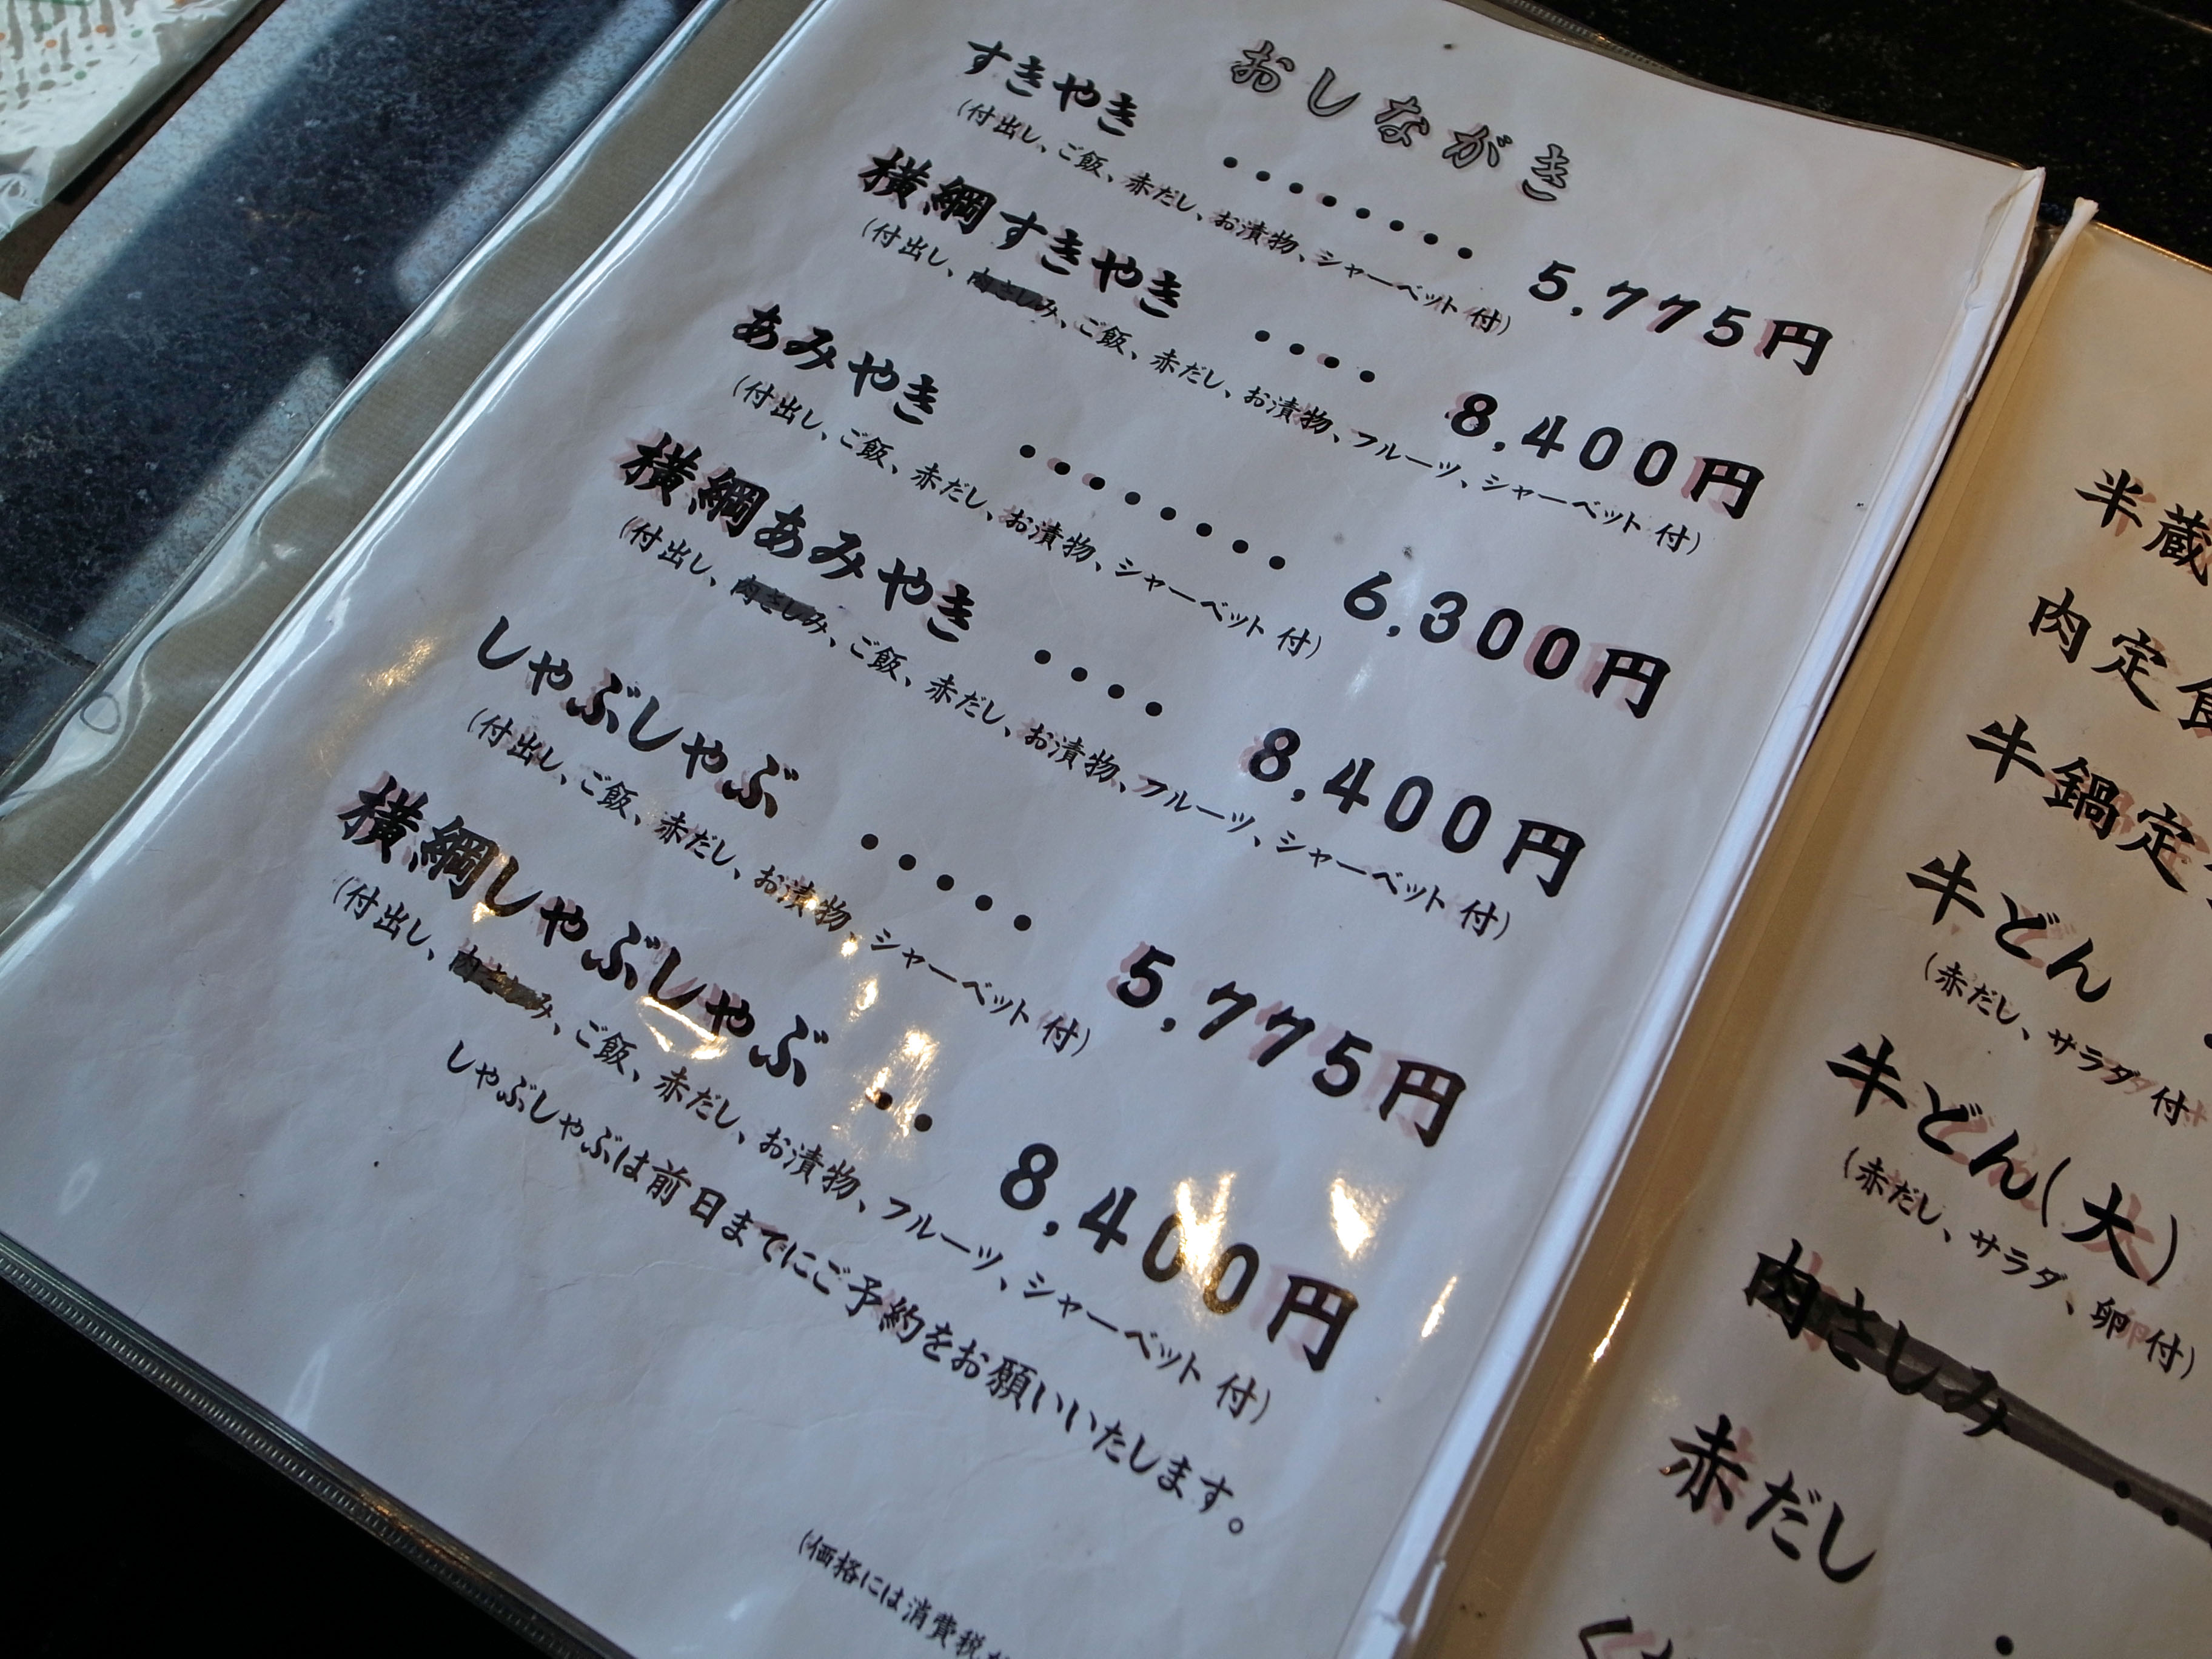 おしながき
すきやき ・・・・・・・・ 5,775円
(付出し、ご飯、赤だし、お漬物、シャーベット 付)
横綱すきやき ・・・・ 8,400円
(付出し、肉さしみ、ご飯、赤だし、お漬物、フルーツ、シャーベット 付)
あみやき ・・・・・・・・ 6,300円
(付出し、ご飯、赤だし、お漬物、シャーベット 付)
横綱あみやき ・・・・ 8,400円
(付出し、肉さしみ、ご飯、赤だし、お漬物、フルーツ、シャーベット 付)
しゃぶしゃぶ ・・・・・ 5,775円
(付出し、ご飯、赤だし、お漬物、シャーベット 付)
横綱しゃぶしゃぶ ・・ 8,400円
(付出し、肉さしみ、ご飯、赤だし、お漬物、フルーツ、シャーベット 付)
しゃぶしゃぶは前日までにご予約をお願いいたします。
(価格には消費税が
半蔵
肉定食
牛鍋定
牛どん
(赤だし、サラダ付
牛どん(大)
(赤だし、サラダ、卵付)
肉さしみ ・・
赤だし